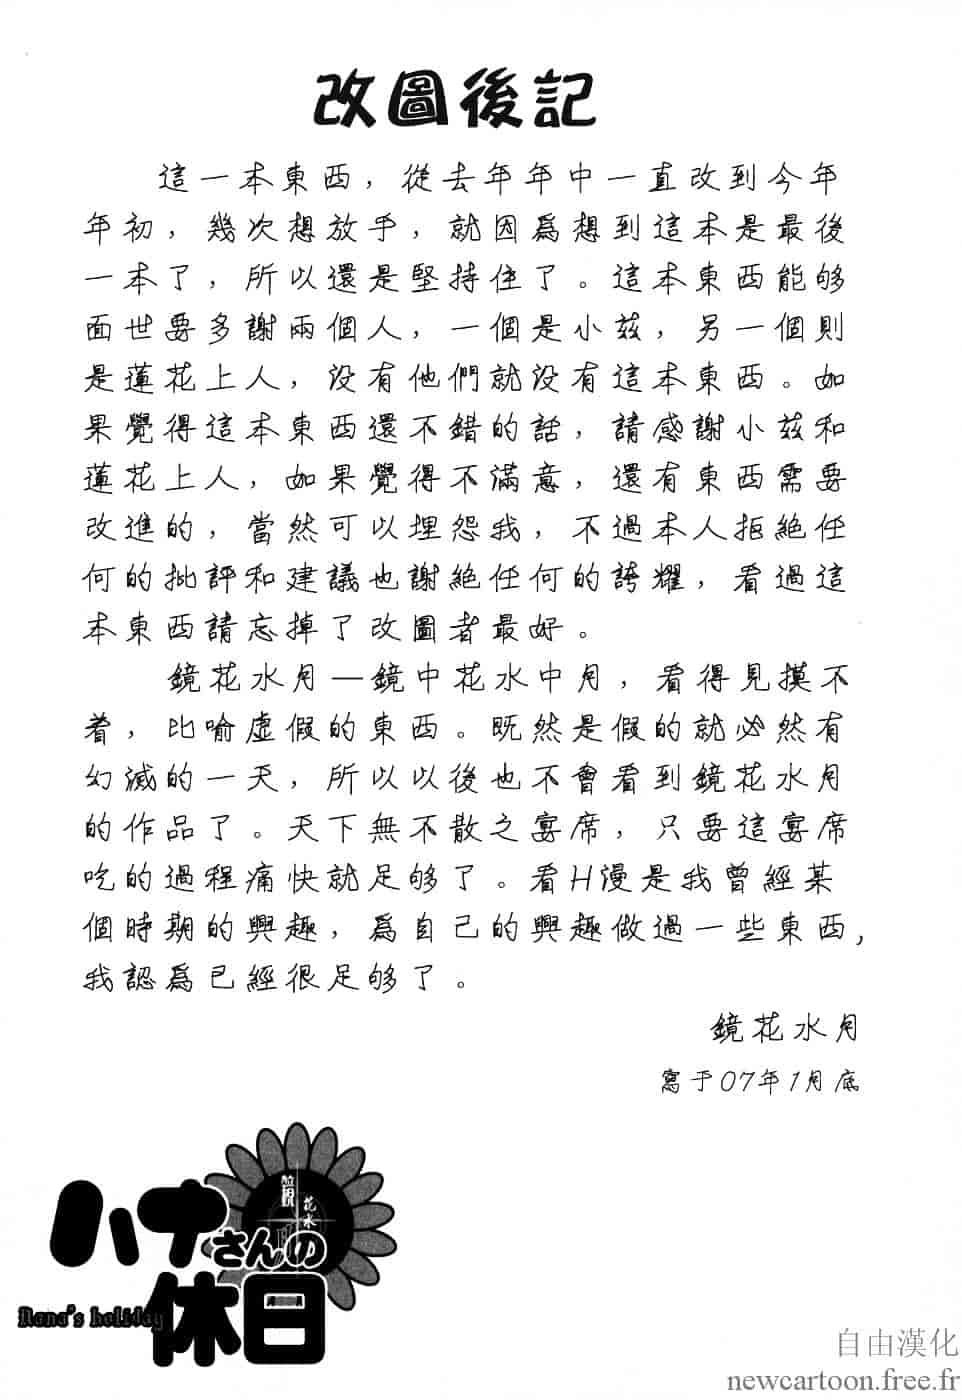 改圖後記
這一本東西，從去年年中一直改到今年
年初，幾次想放手，就因爲想到這本是最後
一本了，所以還是堅持住了。這本東西能够
面世要多謝兩個人，一個是小茲，另一個則
是蓮花上人，没有他們就没有這本東西。如
果覺得這本東西還不錯的話，請感謝小茲和
蓮花上人，如果覺得不滿意，還有東西需要
改進的，當然可以埋怨我，不過本人拒絶任
何的批評和建議也謝絶任何的誇耀，看過這
本東西請忘掉了改圖者最好。
鏡花水月—鏡中花水中月，看得見摸不
着，比喻虛假的東西。既然是假的就必然有
幻滅的一天，所以以後也不會看到鏡花水月
的作品了。天下無不散之宴席，只要這宴席
吃的過程痛快就足够了。看H漫是我曾經某
個時期的興趣，爲自己的興趣做過一些東西，
我認爲已經很足够了。
鏡花水月
寫于07年1月底
ハナさんの
休日
Nana's holiday
花水
自由漢化
newcartoon.free.fr